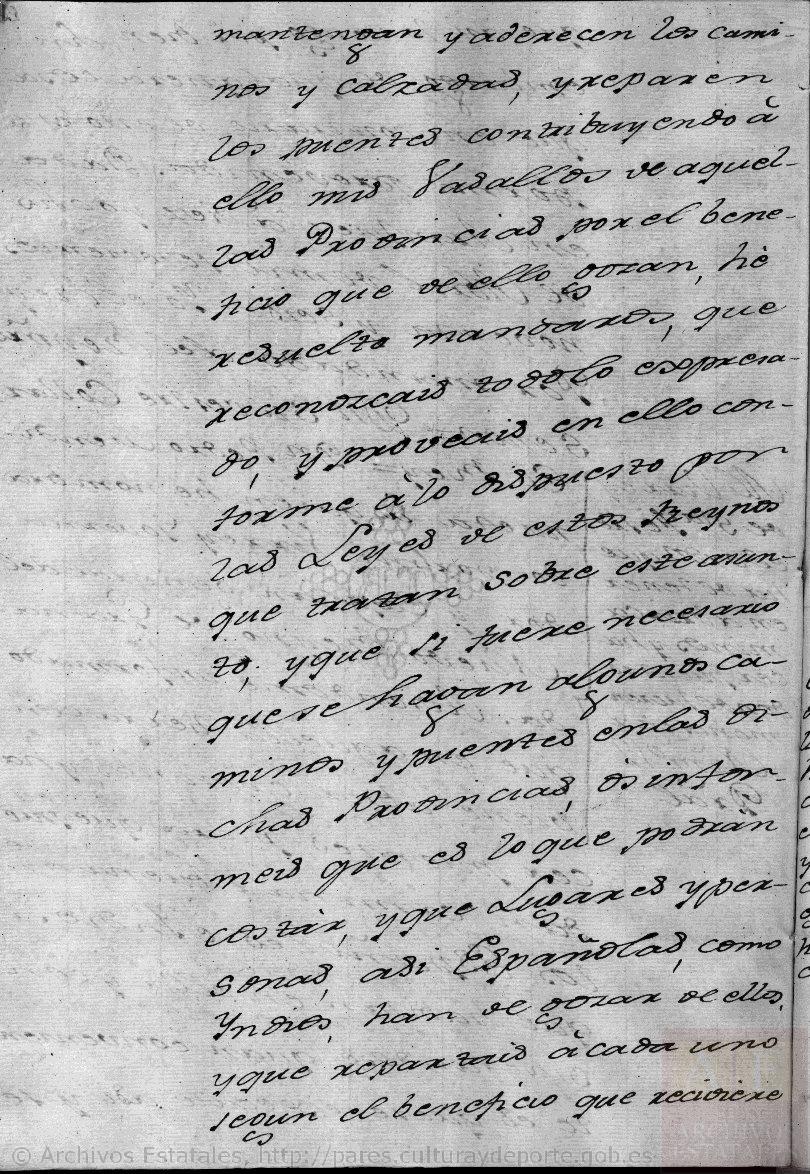 mantengan y aderecen los cami-
nos y calzadas, y reparen
los puentes contribuyendo à
ello mis Vasallos de aquel-
las Provincias por el bene-
ficio que de ello gozan, hè
resuelto mandaros, que
reconozcais todo lo expresa-
do, y proveais en ello con-
forme à lo dispuesto por
las Leyes de estos Reynos
que tratan sobre este asun-
to, y que si fuere necesario
que se hagan algunos ca-
minos y puentes en las di-
chas Provincias, ós infor-
meis que es lo que podran
costàr, y que Lugares y per-
sonas, asi Españolas, como
Yndios, han de gozar de ellos,
y que repartais à cada uno
segun el beneficio que recibiere
© Archivos Estatales, http://pares.culturaydeporte.gob.es